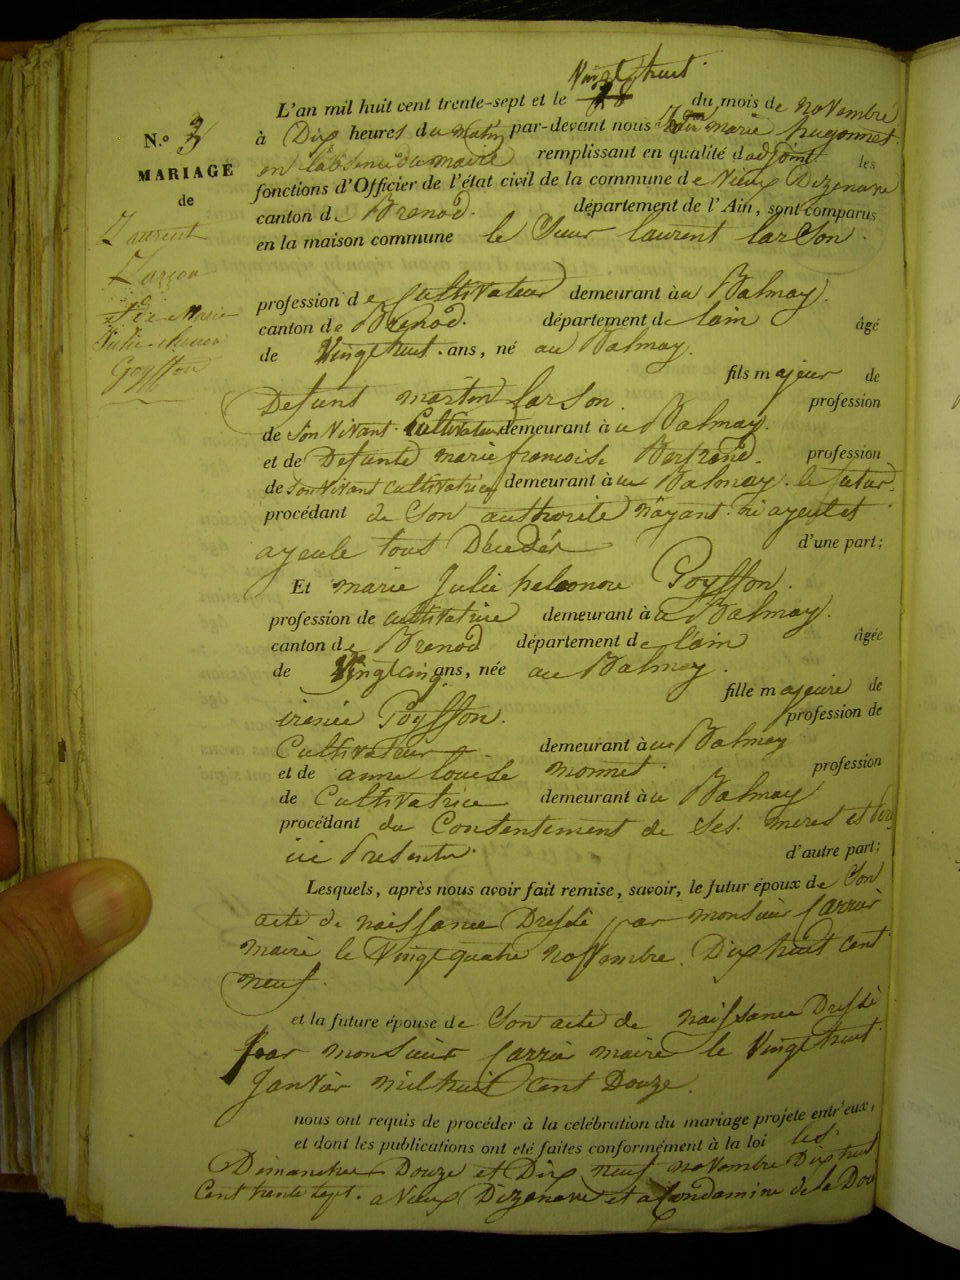 Vingt huit
L'an mil huit cent trente-sept et le du mois de novembre
N.º 3
à Dix heures du matin par-devant nous marie hugonnet
en l'absence du maire remplissant en qualité d'adjoint les
MARIAGE
fonctions d'Officier de l'état civil de la commune de Vieux Dizenave
de
canton de Brenod. département de l'Ain, sont comparus
Laurent
en la maison commune le Sieur laurent larson.
Larson
profession de Cultivateur demeurant à au Balmay.
& de Marie
canton de Brenod. département de lain âgé
Julie
Goyffon
de Vingt huit ans, né au Balmay.
fils majeur de
Defunt martin larson. profession
de Son Vivant Cultivateur demeurant à au Balmay.
et de Defunte marie francoise Bertrand. profession
de Son Vivant cultivatrice demeurant à au Balmay. le futur
procédant de Son authorité n'ayant ni ayeul et
ayeule tous Décédés d'une part;
Et marie Julie heleonore Goyffon.
profession de cultivatrice demeurant à au Balmay.
canton de Brenod département de lain âgée
de Vingt cinq ans, née au Balmay.
fille majeure de
irenée Goyffon. profession de
Cultivateur demeurant à au Balmay
et de anne louise monnet. profession
de Cultivatrice demeurant à au Balmay
procédant du Consentement de Ses meres et
ici Presents. d'autre part;
Lesquels, après nous avoir fait remise, savoir, le futur époux de Son
acte de naissance Dressé par monsieur Carrier
maire le Vingt quatre novembre Dix huit cent
neuf.
et la future épouse de Son acte de naissance Dressé
par monsieur Carrier maire le Vingt huit
Janvier mil huit cent Douze.
nous ont requis de procéder à la celébration du mariage projete entr'eux,
et dont les publications ont été faites conformément à la loi les
Dimanches Douze et Dix neuf novembre Dix huit
Cent trente sept. a Vieux Dizenave et a Condamine de la Dou